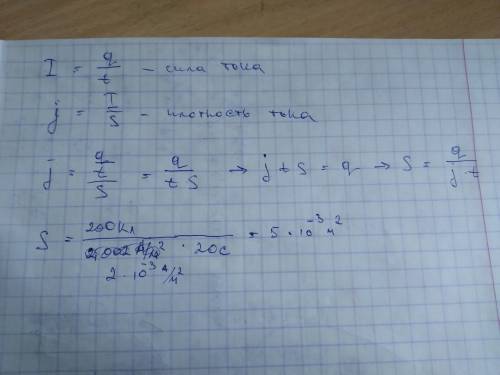 I = q/t – сила тока
j = I/S – плотность тока
j = (q/t)/S = q/(t S) → j t S = q → S = q/(j t)
S = 200Кл/( · 20с) = 5 · 10⁻³ м²
2 · 10⁻³ А/м²